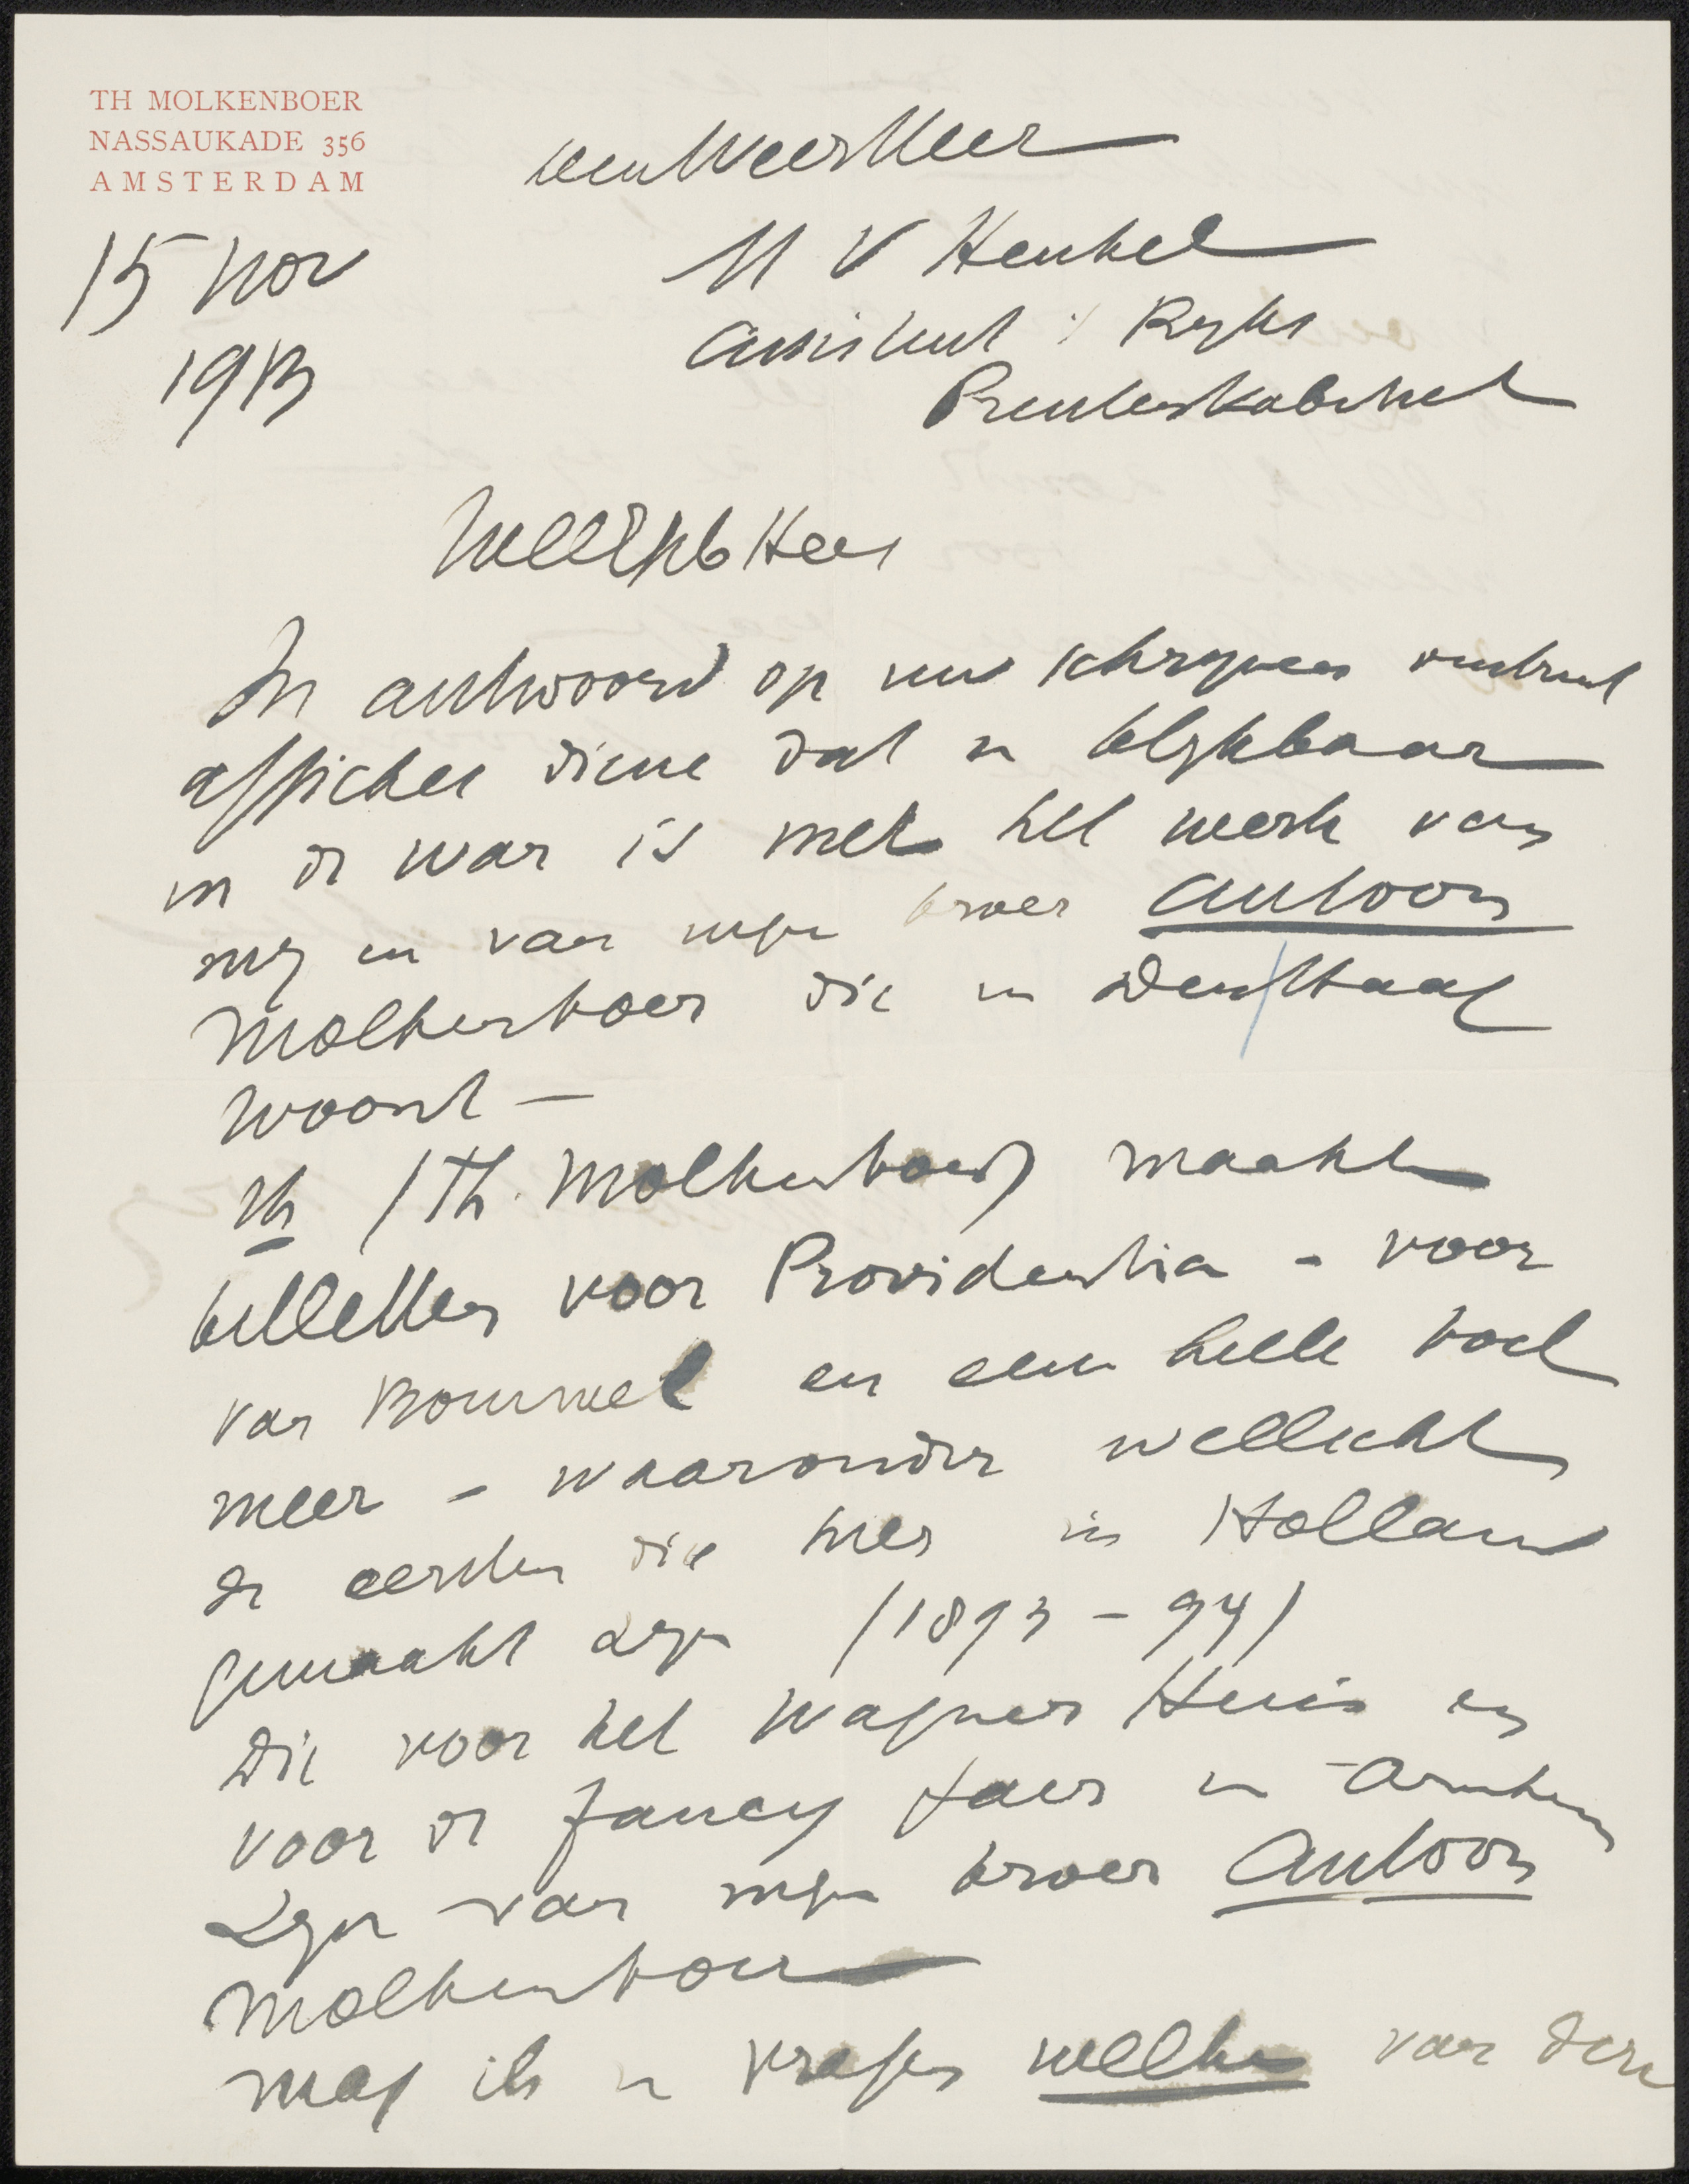 TH MOLKENBOER
NASSAUKADE 356
AMSTERDAM
15 Nov
1913
den WeerHeer
M V Henkel
Assistent i/ Ryks
Prentenkabinet
WelEdGb Heer
In antwoord op uw schryven omtrent
affiches diene dat u blykbaar
in de war is met het werk van
my en van myn broer Antoon
Molkenboer die in Den Haag
woont —
Ik (Th. Molkenboer) maakte
billetten voor Providentia - voor
van Bommel en een heele boel
meer - waaronder wellicht
de eersten die hier in Holland
gemaakt zyn (1893 - 94)
Die voor het Wagner Huis en
voor de Fancy Faer in Arnhem
zyn van myn broer Antoon
Molkenboer
Mag ik u vragen welke van deze